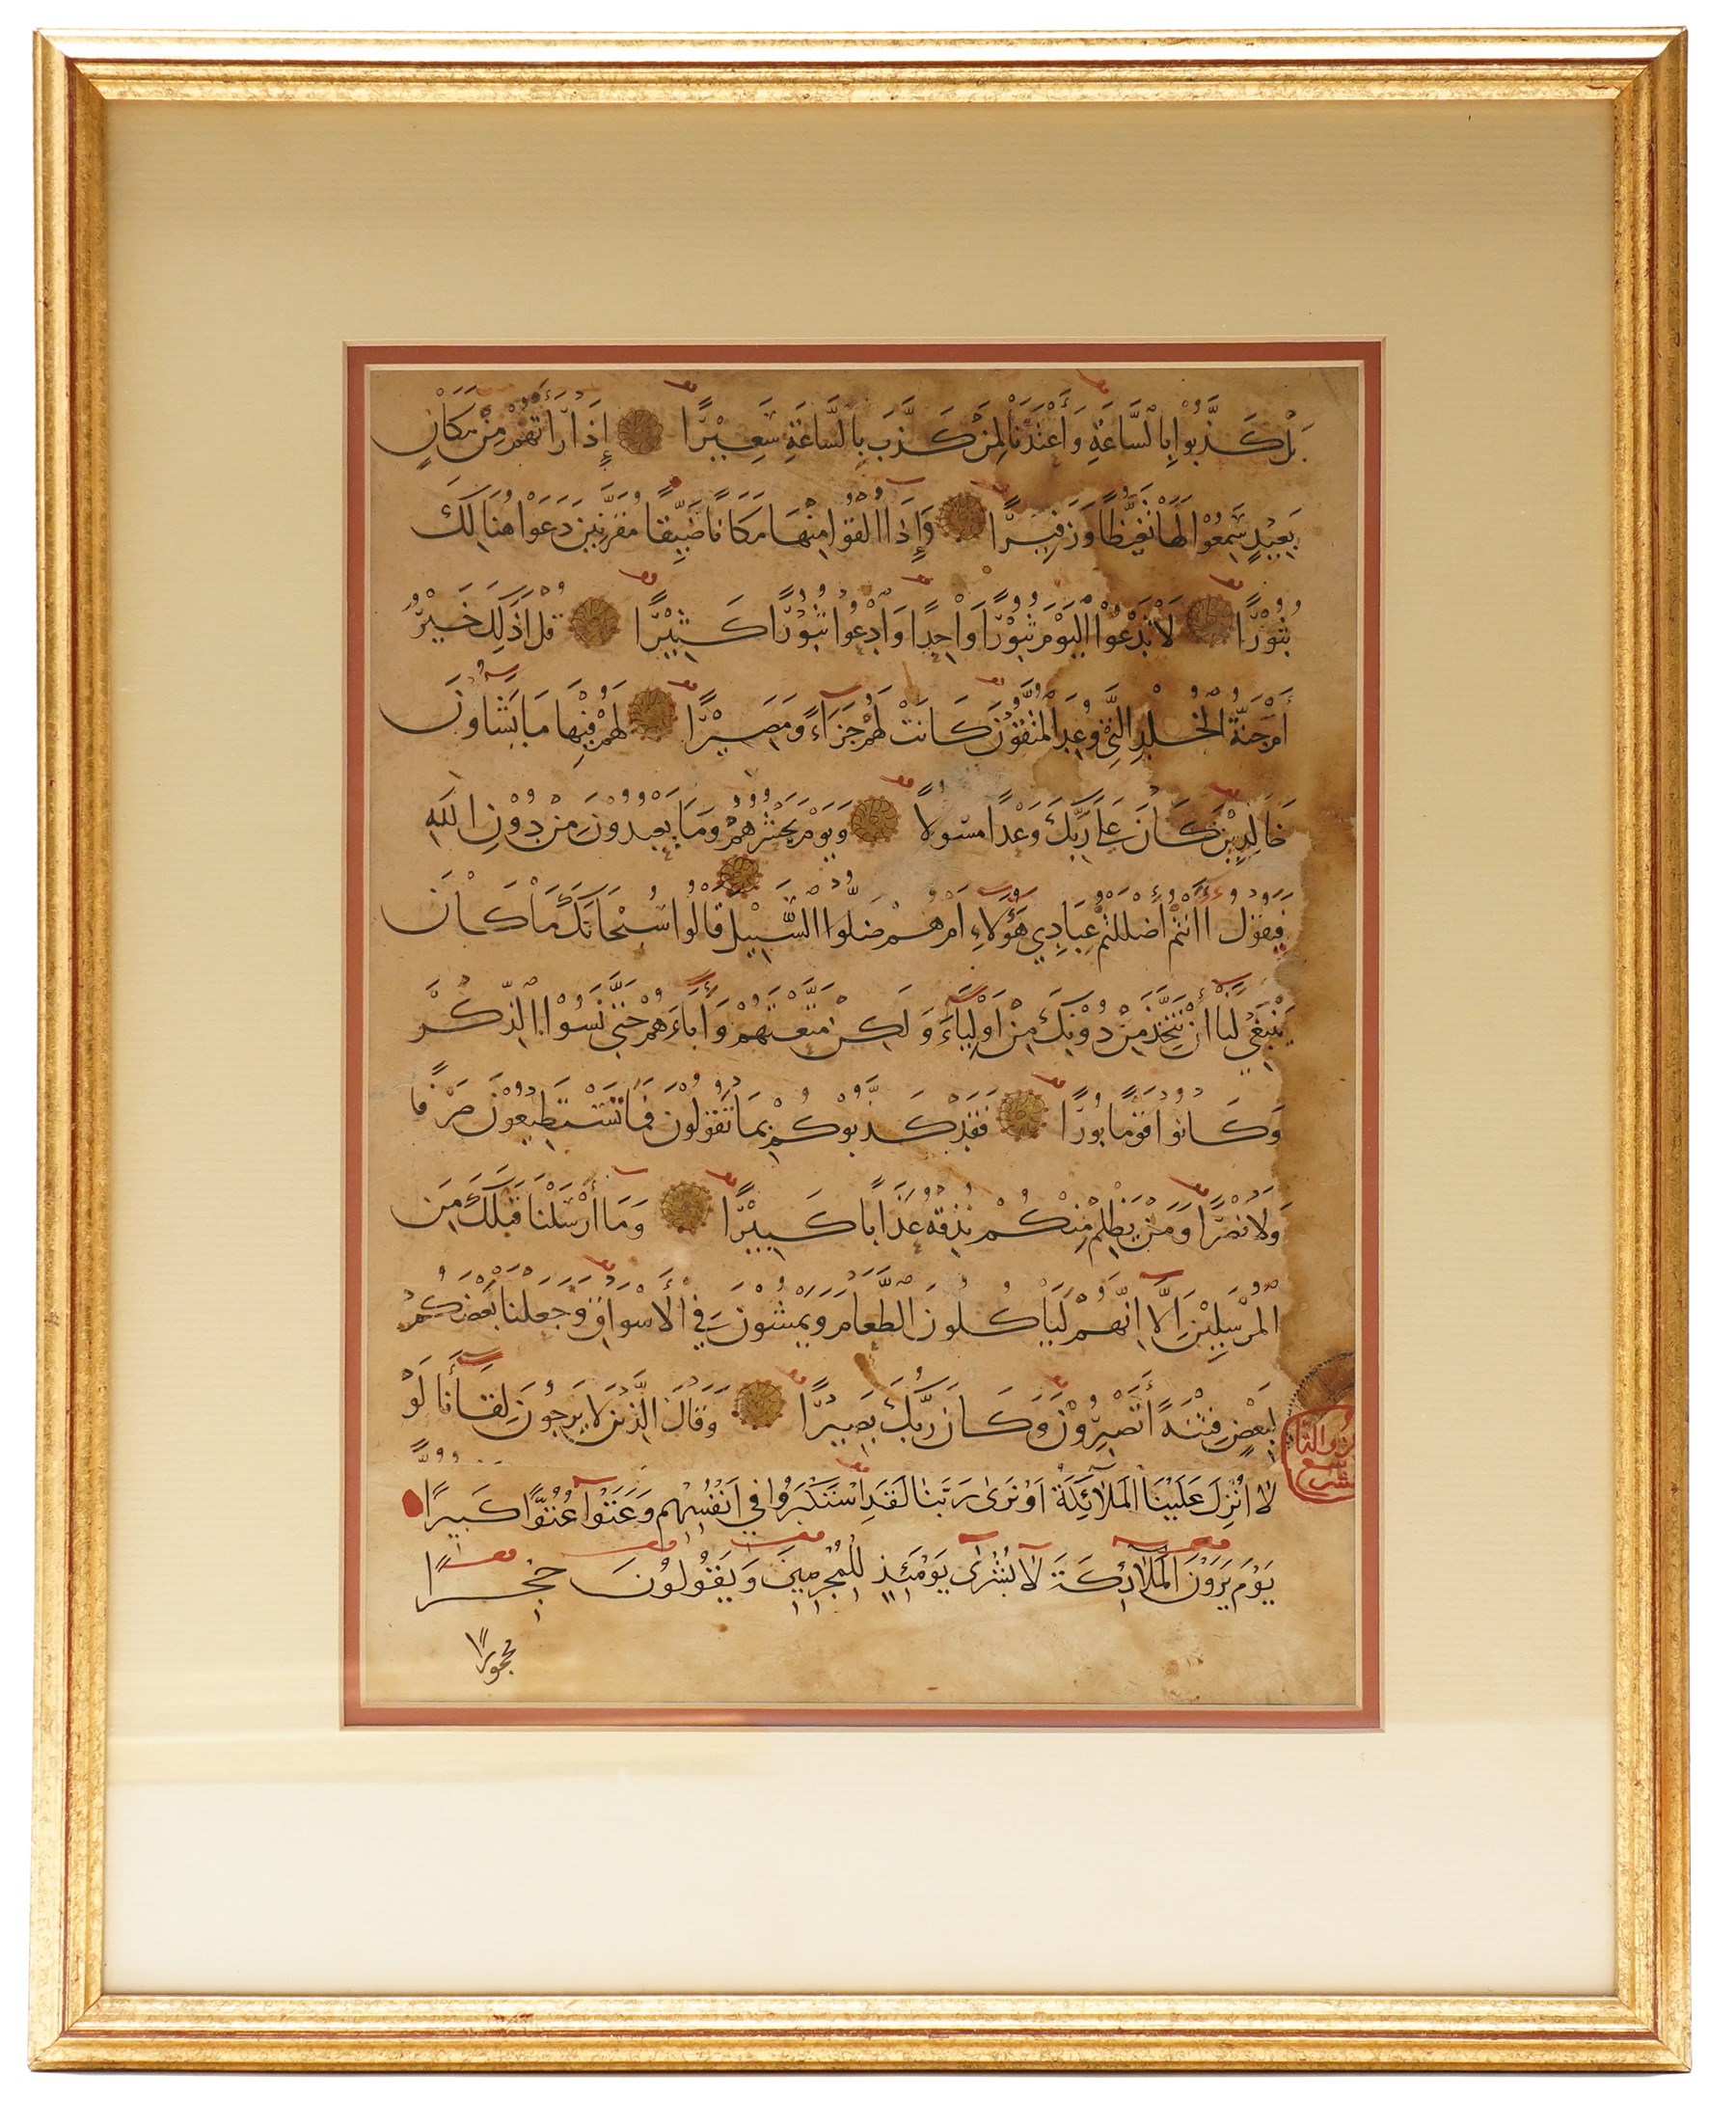 بَلْ كَذَّبُوْا بِالسَّاعَةِ وَأَعْتَدْنَا لِمَنْ كَذَّبَ بِالسَّاعَةِ سَعِيْرًا إِذَا رَأَتْهُمْ مِنْ مَكَانٍ
بَعِيْدٍ سَمِعُوْا لَهَا تَغَيُّظًا وَزَفِيْرًا وَإِذَا أُلْقُوْا مِنْهَا مَكَانًا ضَيِّقًا مُقَرَّنِيْنَ دَعَوْا هُنَالِكَ
ثُبُوْرًا لَا تَدْعُوْا الْيَوْمَ ثُبُوْرًا وَاحِدًا وَادْعُوْا ثُبُوْرًا كَثِيْرًا قُلْ أَذَلِكَ خَيْرٌ
أَمْ جَنَّةُ الْخُلْدِ الَّتِيْ وُعِدَ الْمُتَّقُوْنَ كَانَتْ لَهُمْ جَزَآءً وَمَصِيْرًا لَهُمْ فِيْهَا مَا يَشَاؤُنَ
خَالِدِيْنَ كَانَ عَلَى رَبِّكَ وَعْدًا مَسْئُولًا وَيَوْمَ يَحْشُرُهُمْ وَمَا يَعْبُدُوْنَ مِنْ دُوْنِ اللّٰهِ
فَيَقُوْلُ أَأَنْتُمْ أَضْلَلْتُمْ عِبَادِي هَؤُلَاءِ أَمْ هُمْ ضَلُّوا السَّبِيْلَ قَالُوا سُبْحَانَكَ مَا كَانَ
يَنْبَغِيْ لَنَا أَنْ نَتَّخِذَ مِنْ دُوْنِكَ مِنْ أَوْلِيَآءَ وَلَكِنْ مَتَّعْتَهُمْ وَآبَاءَهُمْ حَتَّى نَسُوْا الذِّكْرَ
وَكَانُوا قَوْمًا بُورًا فَقَدْ كَذَّبُوْكُمْ بِمَا تَقُوْلُوْنَ فَمَا تَسْتَطِيْعُوْنَ صَرْفًا
وَلَا نَصْرًا وَمَنْ يَظْلِمْ مِنْكُمْ نُذِقْهُ عَذَابًا كَبِيْرًا وَمَا أَرْسَلْنَا قَبْلَكَ مِنَ
الْمُرْسَلِيْنَ إِلَّا إِنَّهُمْ لَيَأْكُلُونَ الطَّعَامَ وَيَمْشُوْنَ فِي الْأَسْوَاقِ وَجَعَلْنَا بَعْضَكُمْ
لِبَعْضٍ فِتْنَةً أَتَصْبِرُوْنَ وَكَانَ رَبُّكَ بَصِيْرًا وَقَالَ الَّذِيْنَ لَا يَرْجُونَ لِقَآءَنَا لَوْ
لَا أُنْزِلَ عَلَيْنَا الْمَلَائِكَةُ أَوْ نَرَىٰ رَبَّنَا لَقَدِ اسْتَكْبَرُوْا فِي أَنْفُسِهِمْ وَعَتَوْا عُتُوًّا كَبِيرًا
يَوْمَ يَرَوْنَ الْمَلَآئِكَةَ لَا بُشْرَىٰ يَوْمَئِذٍ لِلْمُجْرِمِينَ وَيَقُولُونَ حِجْرًا
مَحْجُورًا